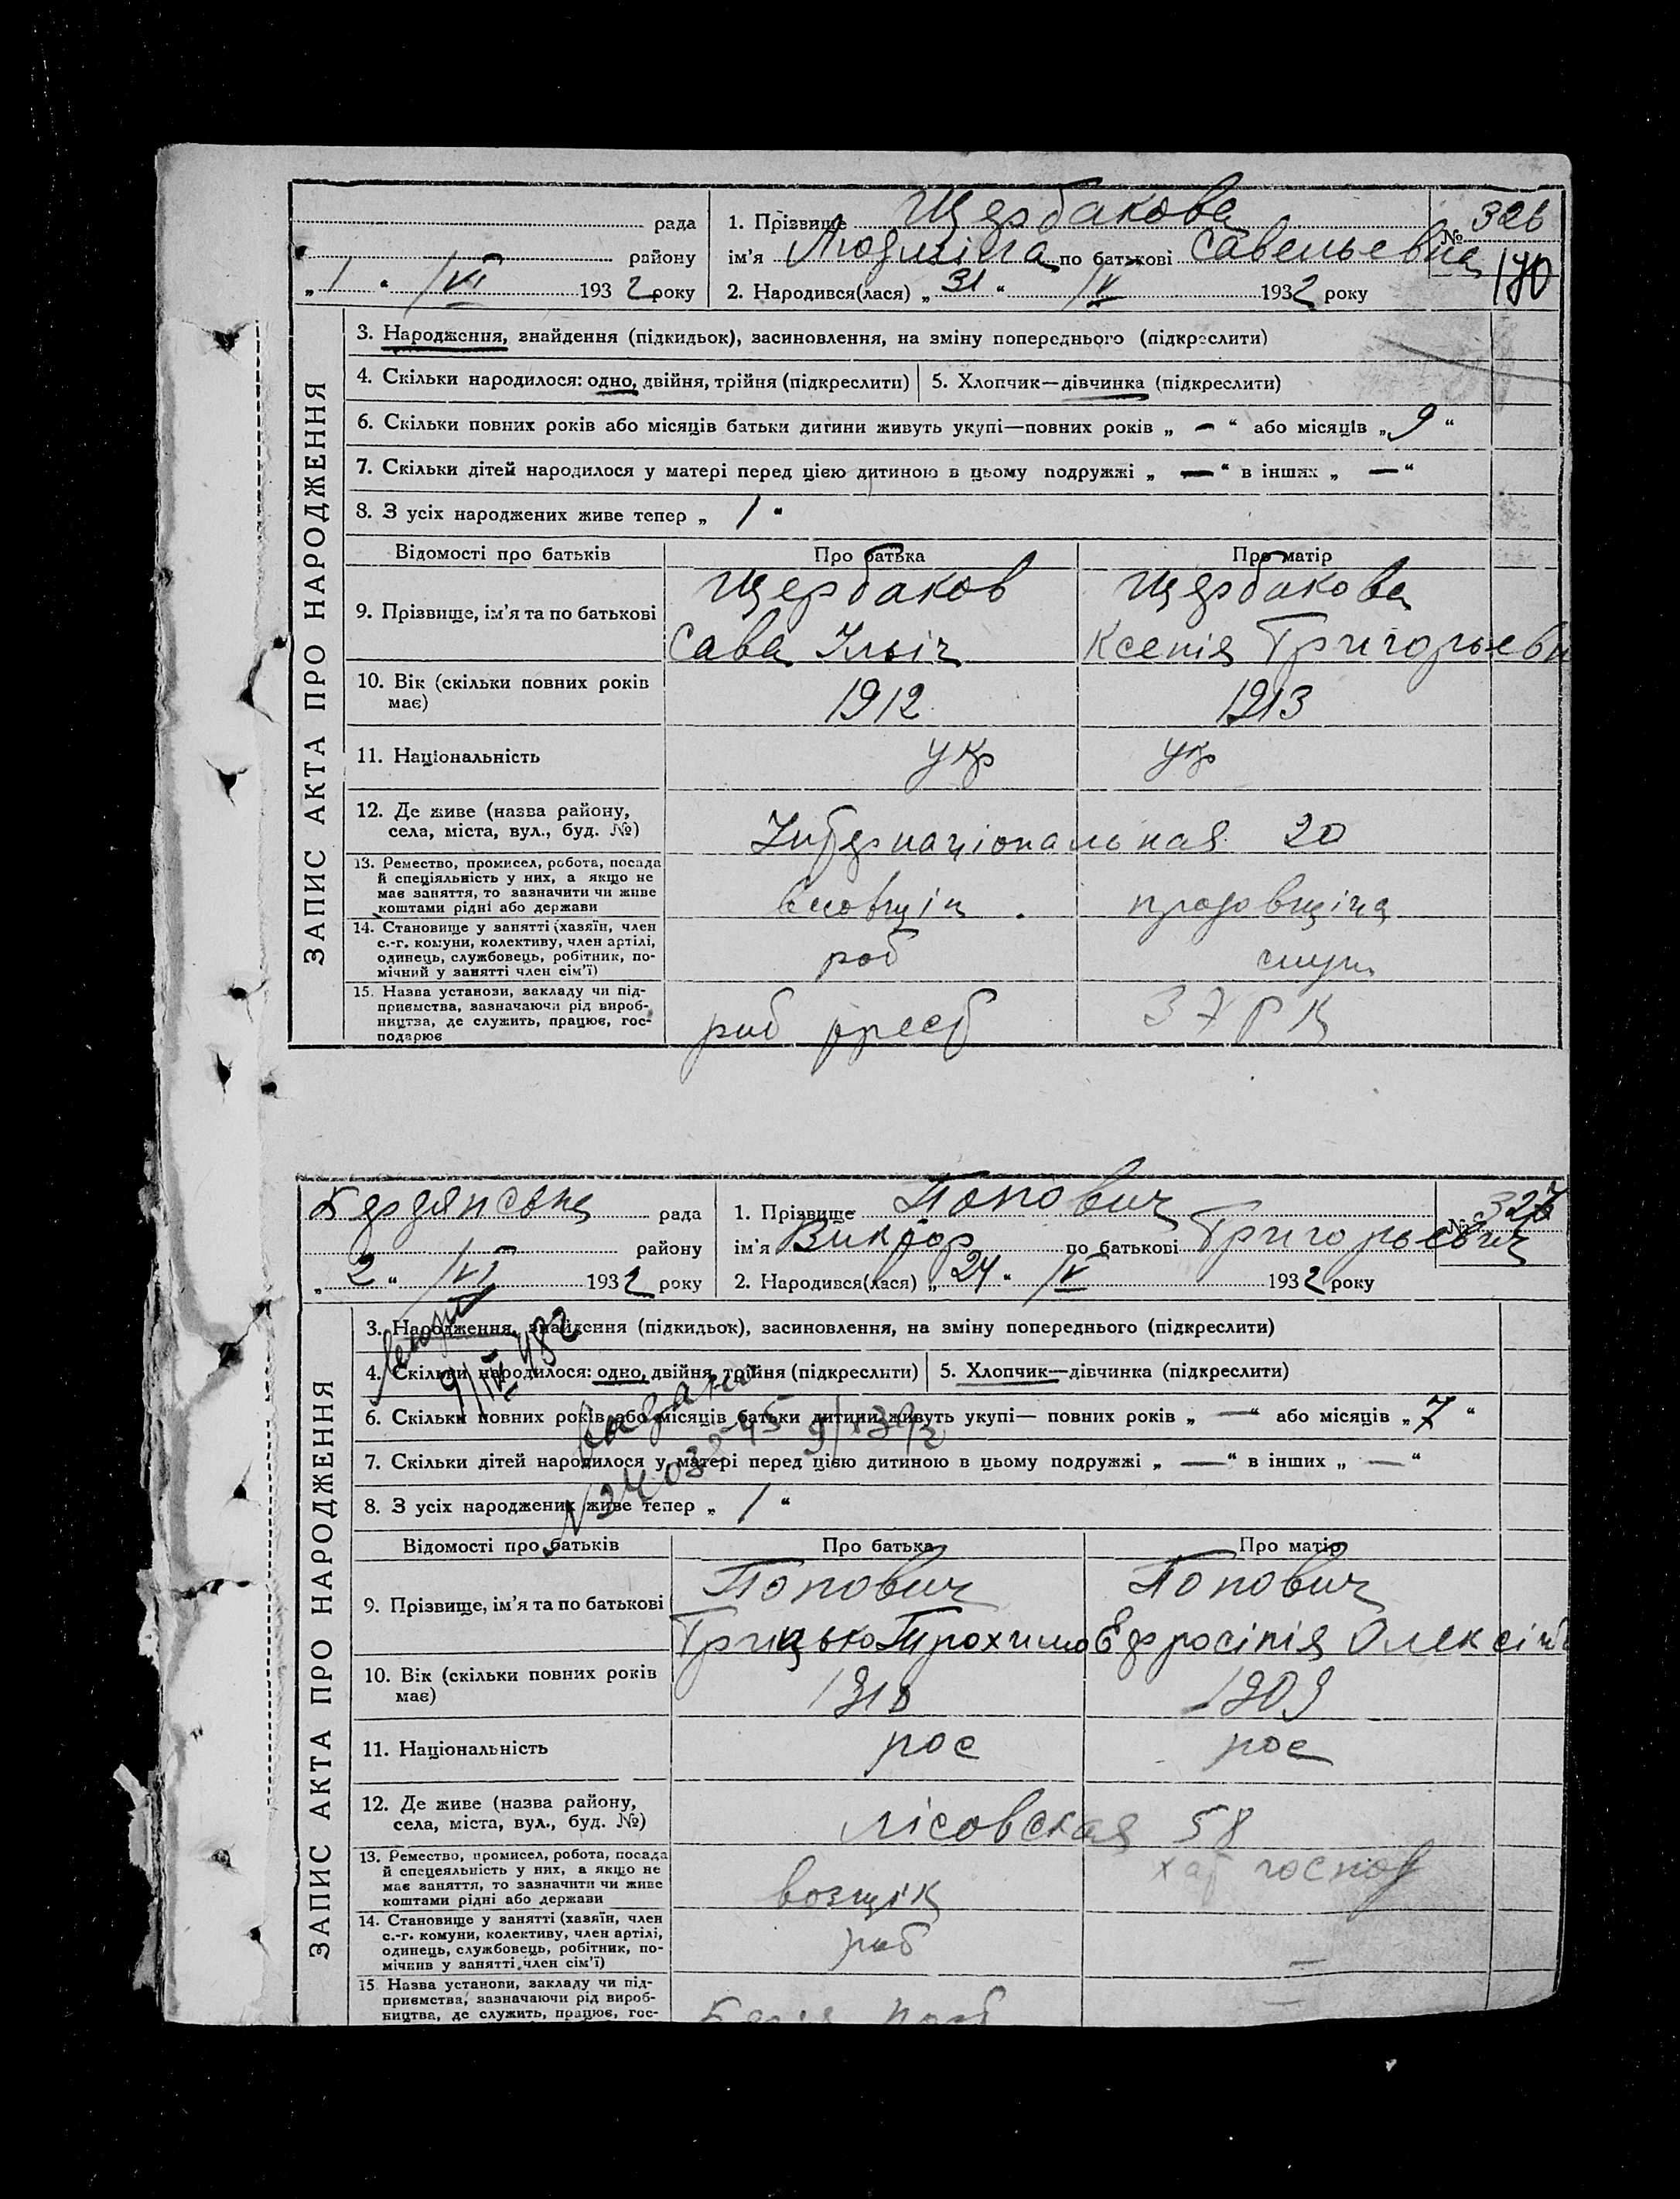 рада
району
„ 1 “ /VI 1932 року
1. Прізвище Щербакова
ім’я Людміла по батькові Савельевна
2. Народився(лася) „ 31 “ /V 1932 року
№ 326
170
ЗАПИС АКТА ПРО НАРОДЖЕННЯ
3. Народження, знайдення (підкидьок), засиновлення, на зміну попереднього (підкреслити)
4. Скільки народилося: одно, двійня, трійня (підкреслити) 5. Хлопчик—дівчинка (підкреслити)
6. Скільки повних років або місяців батьки дитини живуть укупі—повних років „ — “ або місяців „ 9 “
7. Скільки дітей народилося у матері перед цією дитиною в цьому подружжі „ — “ в інших „ — “
8. З усіх народжених живе тепер „ 1 “
Відомості про батьків Про батька Про матір
9. Прізвище, ім’я та по батькові
Щербаков
Сава Ільіч
Щербакова
Ксенія Григорьевн
10. Вік (скільки повних років
має)
1912 1913
11. Національність укр укр
12. Де живе (назва району,
села, міста, вул., буд. №)
Інтернаціональная 20
13. Ремество, промисел, робота, посада
й спеціяльність у них, а якщо не
має заняття, то зазначити чи живе
коштами рідні або держави
продовщіца
14. Становище у занятті (хазяїн, член
с.-г. комуни, колективу, член артілі,
одинець, службовець, робітник, по-
мічний у занятті член сім’ї)
роб служ
15. Назва установи, закладу чи під-
приємства, зазначаючи рід вироб-
ництва, де служить, працює, гос-
подарює
риб трест ЗРК
Бердянська рада
району
„ 2 “ /VI 1932 року
1. Прізвище Попович
ім’я Виктор по батькові Григорьевич
2. Народився(лася) „ 24 “ /V 1932 року
№ 327
ЗАПИС АКТА ПРО НАРОДЖЕННЯ
3. Народження, знайдення (підкидьок), засиновлення, на зміну попереднього (підкреслити)
4. Скільки народилося: одно, двійня, трійня (підкреслити) 5. Хлопчик—дівчинка (підкреслити)
6. Скільки повних років або місяців батьки дитини живуть укупі— повних років „ — “ або місяців „ 7 “
7. Скільки дітей народилося у матері перед цією дитиною в цьому подружжі „ — “ в інших „ — “
8. З усіх народжених живе тепер „ 1 “
Відомості про батьків Про батька Про матір
9. Прізвище, ім’я та по батькові
Попович
Грицько Трохимо
Попович
Ефросінія Олексіїв
10. Вік (скільки повних років
має)
1909
11. Національність рос рос
12. Де живе (назва району,
села, міста, вул., буд. №)
лісовская 58
13. Ремество, промисел, робота, посада
й спецеяльність у них, а якщо не
має заняття, то зазначити чи живе
коштами рідні або держави
возщік хат господ
14. Становище у занятті (хазяїн, член
с.-г. комуни, колективу, член артілі,
одинець, службовець, робітник, по-
мічнив у занятті член сім’ї)
роб —
15. Назва установи, закладу чи під-
приємства, зазначаючи рід вироб-
ництва, де служить, працює, гос-
—